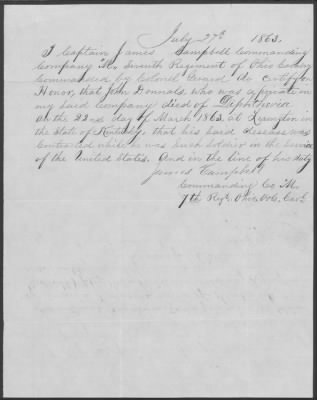 July 27th 1863.
I Captain James Campbell Commanding
Company M. Seventh Regiment of Ohio Cavalry
Commanded by Colonel Garard do certify on
Honor, that John Donnals, who was a private in
my said Company died of Diphtheria
on the 23rd day of March 1863, at Lexington in
the State of Kentucky, that his said disease was
Contracted while he was such soldier in the service
of the United States. And in the line of his duty
James Campbell
Commanding Co M.
7th Regt. Ohio Vol. Cav.